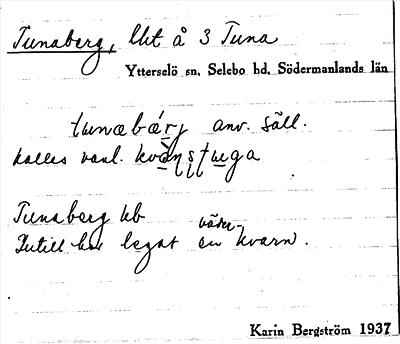 Tunaberg, lht å 3 Tuna
Ytterselö sn. Selebo hd. Södermanlands län
tunabærj anv. säll.
kalles vanl. kvanstuga
Tunaberg hb
Intill har legat en väder-kvarn.
Karin Bergström 1937